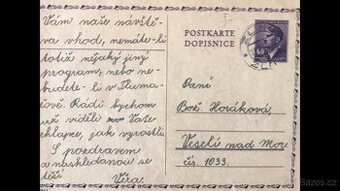 Vám naše návště-
va vhod, nemáte-li
totiž nějaký jiný
program, nebo ne-
budete-li v Tluma-
čově. Rádi bychom
už viděli Vaše
chlapce, jak vyrostli
S pozdravem
a naschledanou se
těší
Věra.
POSTKARTE
DOPISNICE
60
ZLÍN
Paní
Bož. Horáková,
Veselí nad Mor.
čís. 1033.
Sbazos.cz